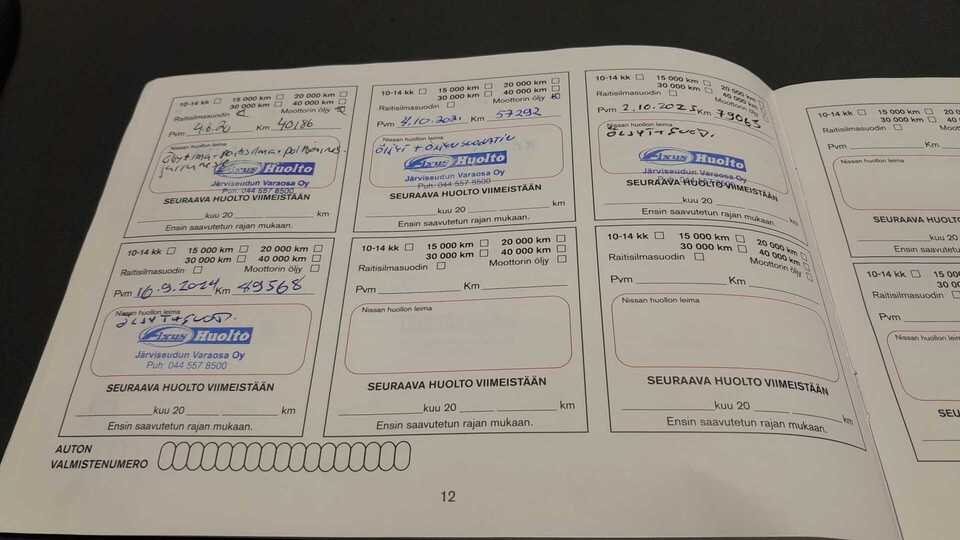 10-14 kk 15 000 km 20 000 km
30 000 km 40 000 km
Raitisilmasuodin Moottorin öljy
Pvm 4.6.20 Km 40186
Nissan huollon leima
Fixus Huolto
Järviseudun Varaosa Oy
Puh: 044 557 8500
SEURAAVA HUOLTO VIIMEISTÄÄN
kuu 20 km
Ensin saavutetun rajan mukaan.
10-14 kk 15 000 km 20 000 km
30 000 km 40 000 km
Raitisilmasuodin Moottorin öljy
Pvm 4.10.2021 Km 57292
Nissan huollon leima
Öljyt + öljynsuodatin
Fixus Huolto
Järviseudun Varaosa Oy
Puh: 044 557 8500
SEURAAVA HUOLTO VIIMEISTÄÄN
kuu 20 km
Ensin saavutetun rajan mukaan.
10-14 kk 15 000 km 20 000 km
30 000 km 40 000 km
Raitisilmasuodin Moottorin öljy
Pvm 2.10.2025 Km 79063
Nissan huollon leima
ÖLJYT + SUOD.
Fixus Huolto
Järviseudun Varaosa Oy
SEURAAVA HUOLTO VIIMEISTÄÄN
kuu 20 km
Ensin saavutetun rajan mukaan.
10-14 kk
Raitisilmasuodin
Pvm
Nissan huollon leima
SEURAAVA HUOLTO
kuu 20
Ensin saavutetun
10-14 kk 15 000 km 20 000 km
30 000 km 40 000 km
Raitisilmasuodin Moottorin öljy
Pvm 16.9.2024 Km 49568
Nissan huollon leima
ÖLJYT + SUOD.
Fixus Huolto
Järviseudun Varaosa Oy
Puh: 044 557 8500
SEURAAVA HUOLTO VIIMEISTÄÄN
kuu 20 km
Ensin saavutetun rajan mukaan.
10-14 kk 15 000 km 20 000 km
30 000 km 40 000 km
Raitisilmasuodin Moottorin öljy
Pvm Km
Nissan huollon leima
SEURAAVA HUOLTO VIIMEISTÄÄN
kuu 20 km
Ensin saavutetun rajan mukaan.
10-14 kk 15 000 km 20 000 km
30 000 km 40 000 km
Raitisilmasuodin Moottorin öljy
Pvm Km
Nissan huollon leima
SEURAAVA HUOLTO VIIMEISTÄÄN
kuu 20 km
Ensin saavutetun rajan mukaan.
10-14 kk
Raitisilmasuodin
Pvm
Nissan huollon
Ensin
AUTON
VALMISTENUMERO
12